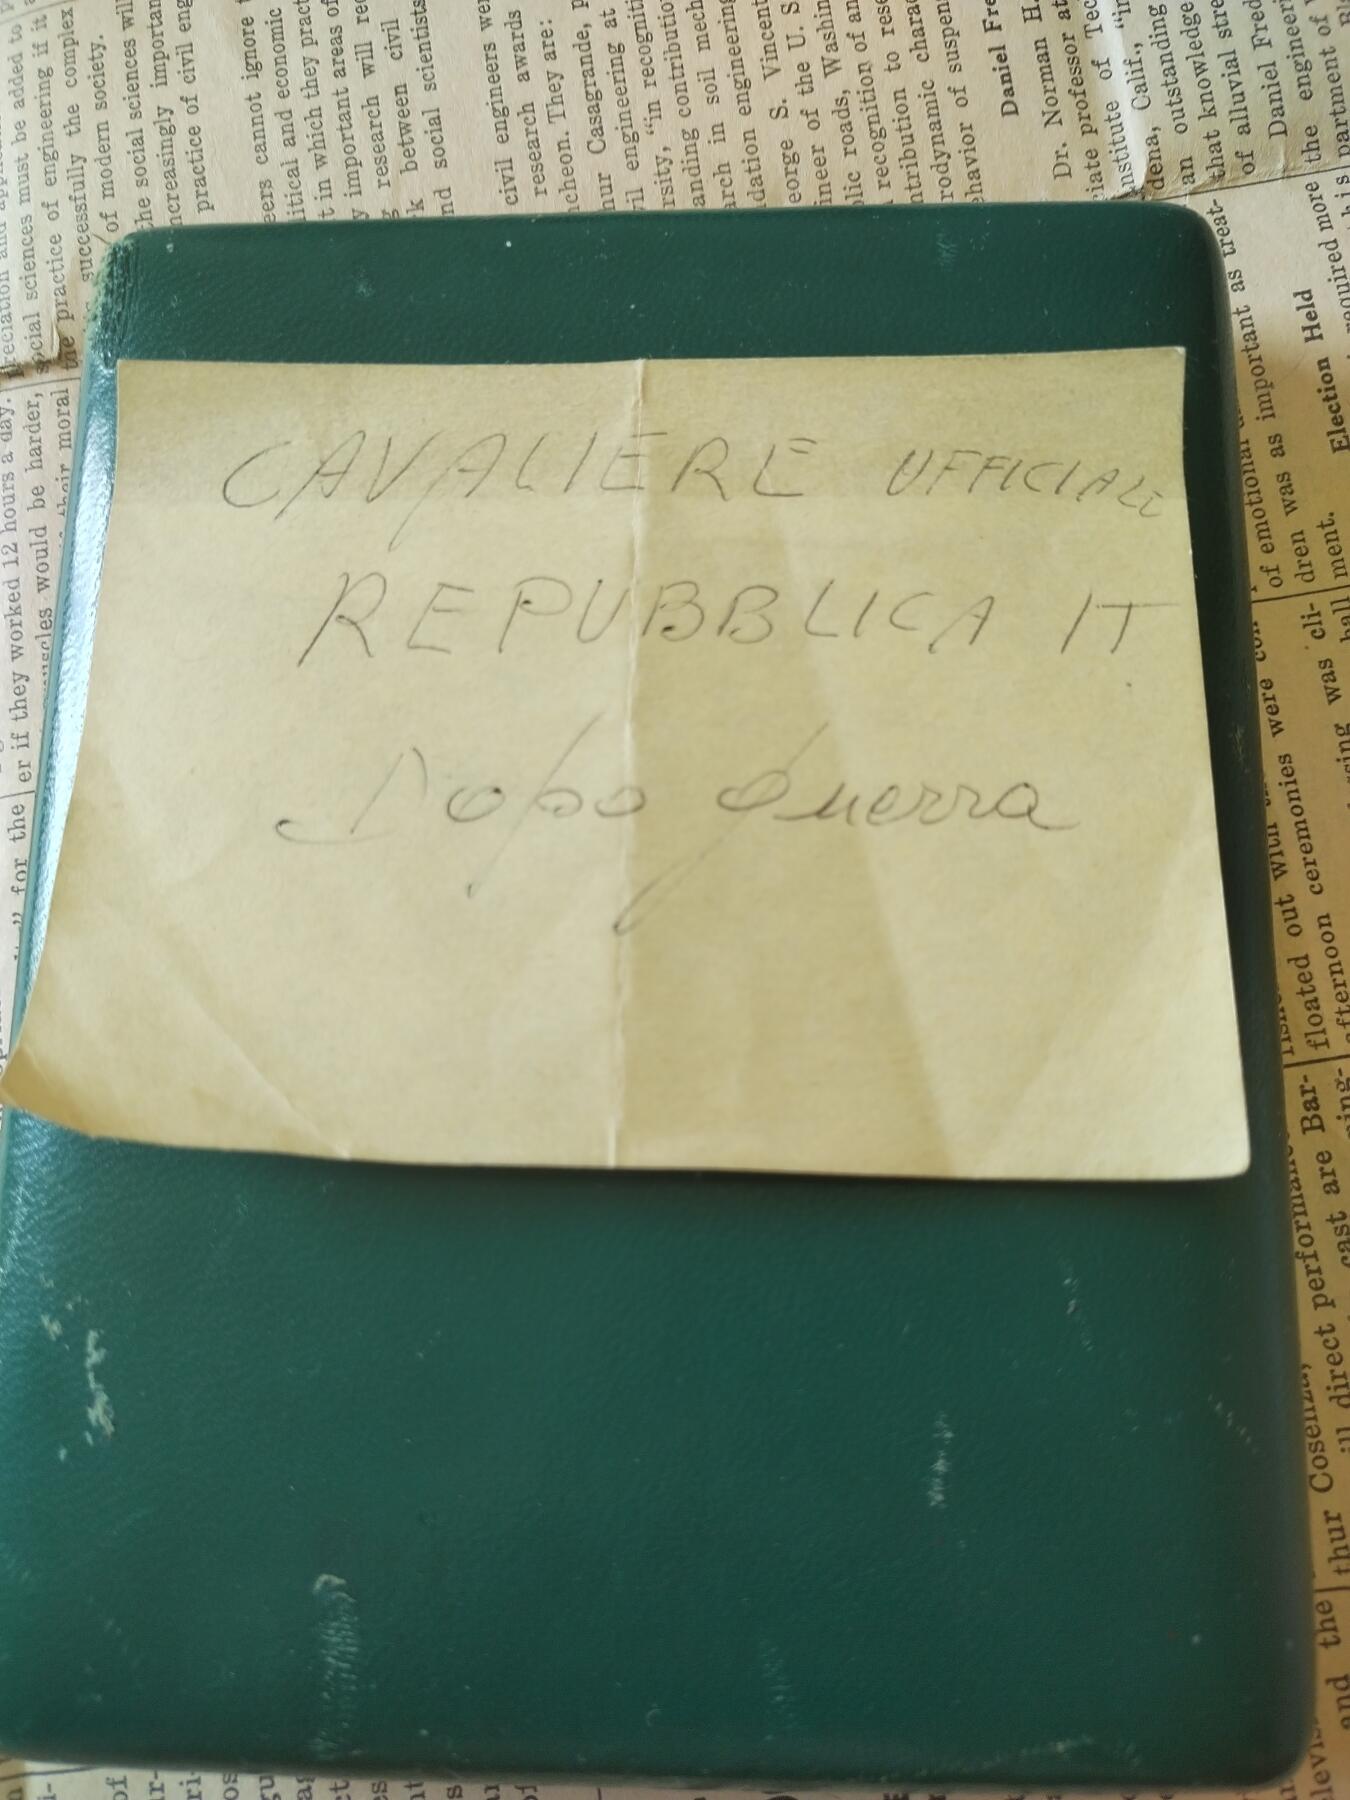 CAVALIERE UFFICIALE
REPUBBLICA IT
Dopo guerra
social sciences must be added to
practice of engineering if it
successfully the complex
of modern society.
the social sciences will
increasingly important
practice of civil eng
eers cannot ignore
litical and economic
t in which they pract
y important areas of
research will
between civil
nd social scientists
civil engineers wer
research awards
cheon. They are:
hur Casagrande, p
vil engineering at
rsity, "in recogniti
anding contribution
arch in soil mech
dation engineering
eorge S. Vincent
ineer of the U. S.
blic roads, Washin
recognition of an
ntribution to rese
rodynamic charac
ehavior of suspen
Daniel Fre
Dr. Norman H.
ciate professor at
nstitute of Tec
dena, Calif., "in
an outstanding
that knowledge
of alluvial stre
of Daniel Fred
the engineeri
partment of
required more
Election Held
as important as treat-
of emotional
dren was as
ment.
er if they worked 12 hours a day.
muscles would be harder,
their moral
" for the
were con
rising was cli-
hall
floated out with
afternoon ceremonies
cast are Bar-
will direct performanc
thur Cosenza,
and the